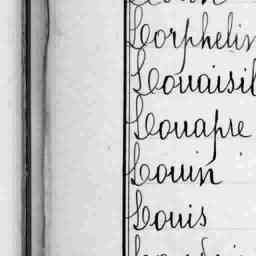 Lorphelin
Louaisil
Louapre
Louin
Louis